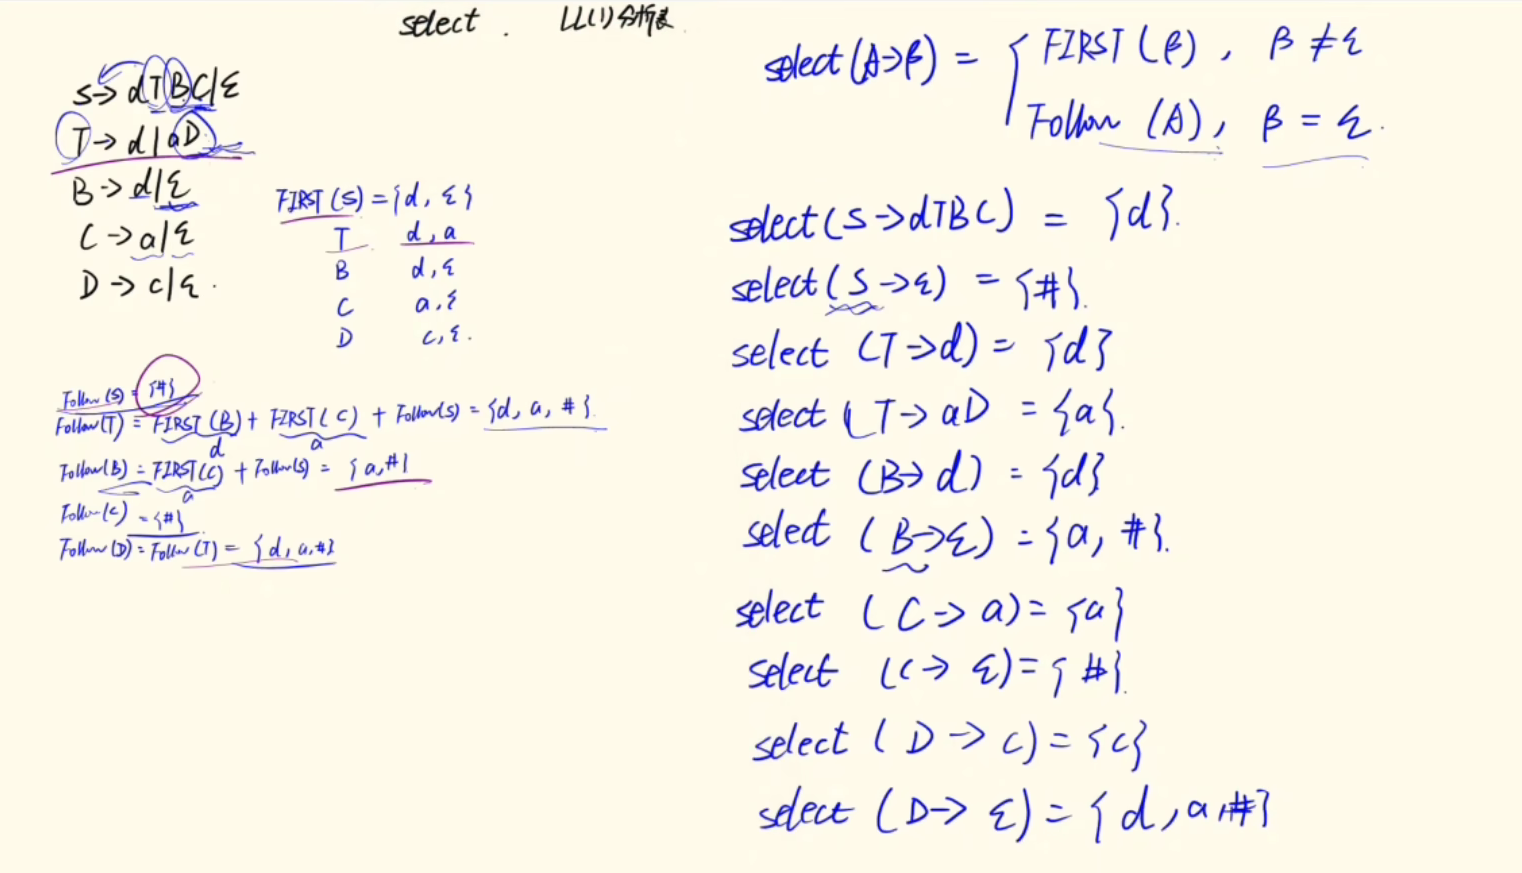 select . LL(1)分析表
S→dTBC|ε
T→d|aD
B→d|ε
C→a|ε
D→c|ε.
FIRST(S)={d, ε}
T d,a
B d,ε
C a,ε
D c,ε.
Follow(S)={#}
Follow(T)=FIRST(B)+FIRST(C)+Follow(S)={d, a, #}.
d a
Follow(B)=FIRST(C)+Follow(S)={a,#}
a
Follow(C)={#}
Follow(D)=Follow(T)={d, a,#}
select(A→β)={FIRST(β), β≠ε
Follow(A), β=ε.
select(S→dTBC) = {d}.
select(S→ε) = {#}.
select (T→d) = {d}
select (T→aD = {a}.
select (B→d) = {d}
select (B→ε) = {a, #}.
select (C→a) = {a}
select (C→ε) = {#}.
select (D→c) = {c}
select (D→ε) = {d, a,#}